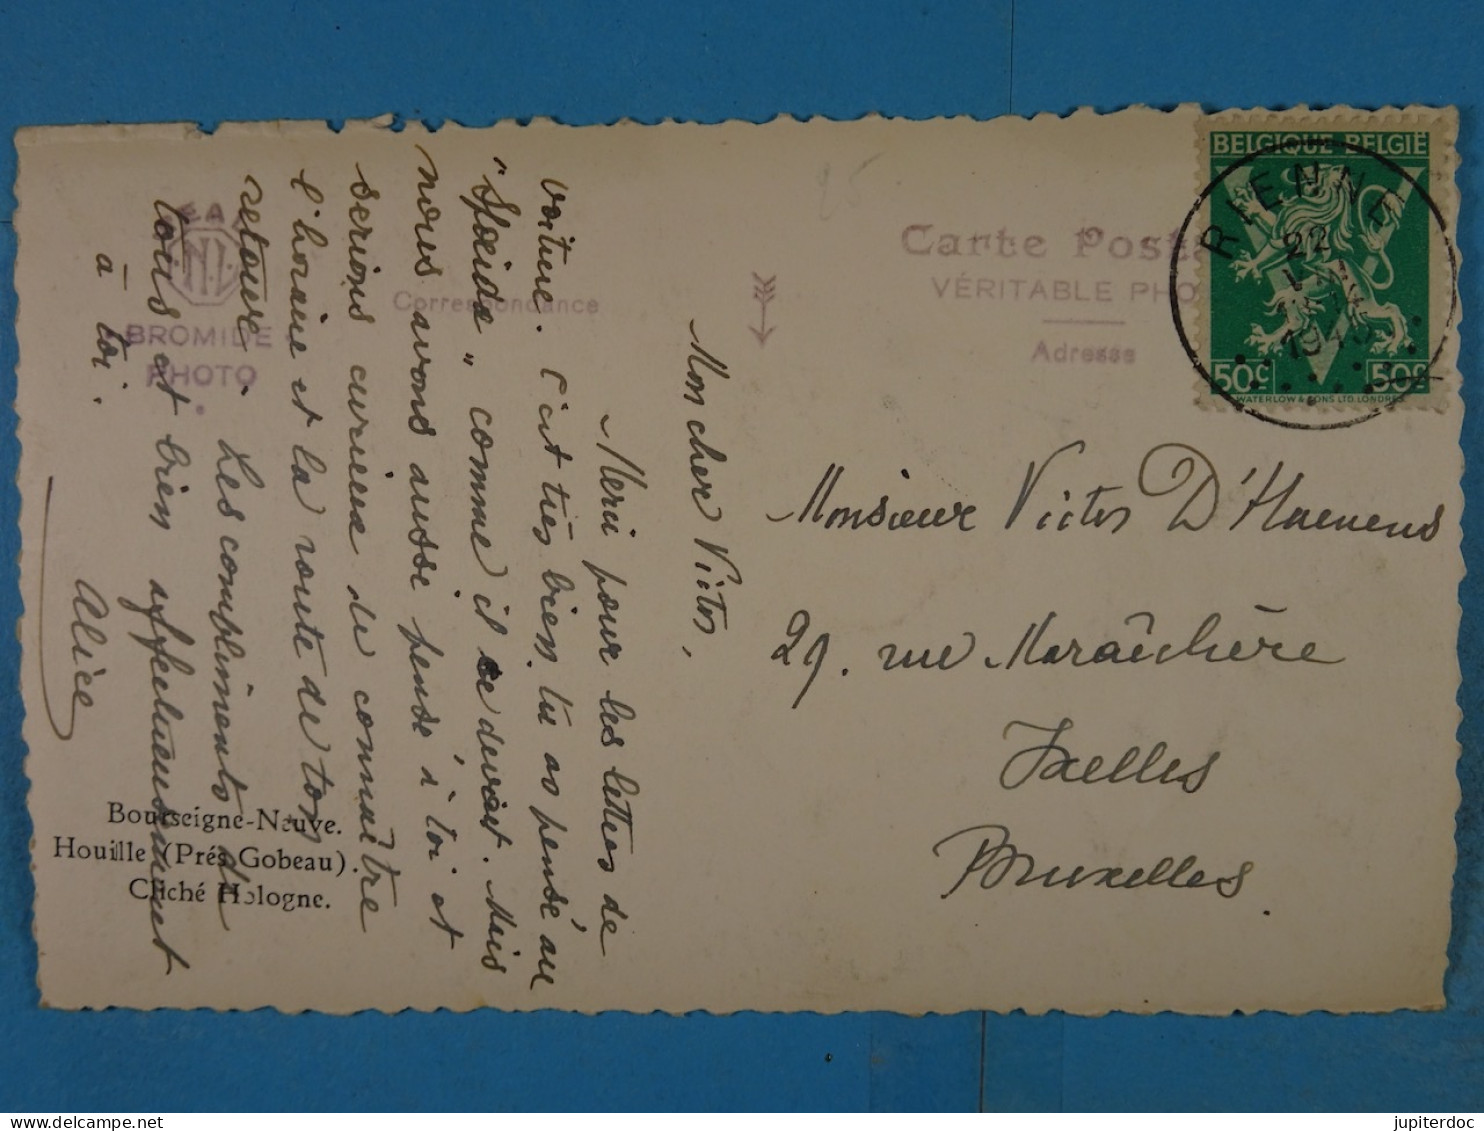 Carte Post
VÉRITABLE PHO
Adresse
Correspondance
BROMIDE
PHOTO
BELGIQUE BELGIË
50c 50c
WATERLOW & SONS LTD. LONDRES
RIENNE
22
1945
Monsieur Victor D'Haenens
29. rue Maraîchère
Ixelles
Bruxelles.
Mon cher Victor,
Merci pour les lettres de
voiture. C'est très bien, tu as pensé au
"Speida" comme il se devait. Mais
nous avons aussi pensé à toi et
serions curieux de connaître
l'horaire et la route de ton
retour. Les compliments de
tous et bien affectueusement
à toi.
Alice
Bourseigne-Neuve.
Houille (Prés Gobeau).
Cliché Hologne.
jupiterdoc
delcampe.net